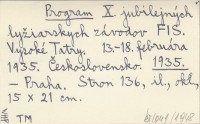 Program X. jubilejných
lyžiarskych závodov FIS.
Vysoké Tatry. 13.-18. februára
1935. Československo. 1935.
– Praha. Stron 136, il., okl.,
15 x 21 cm.
TM